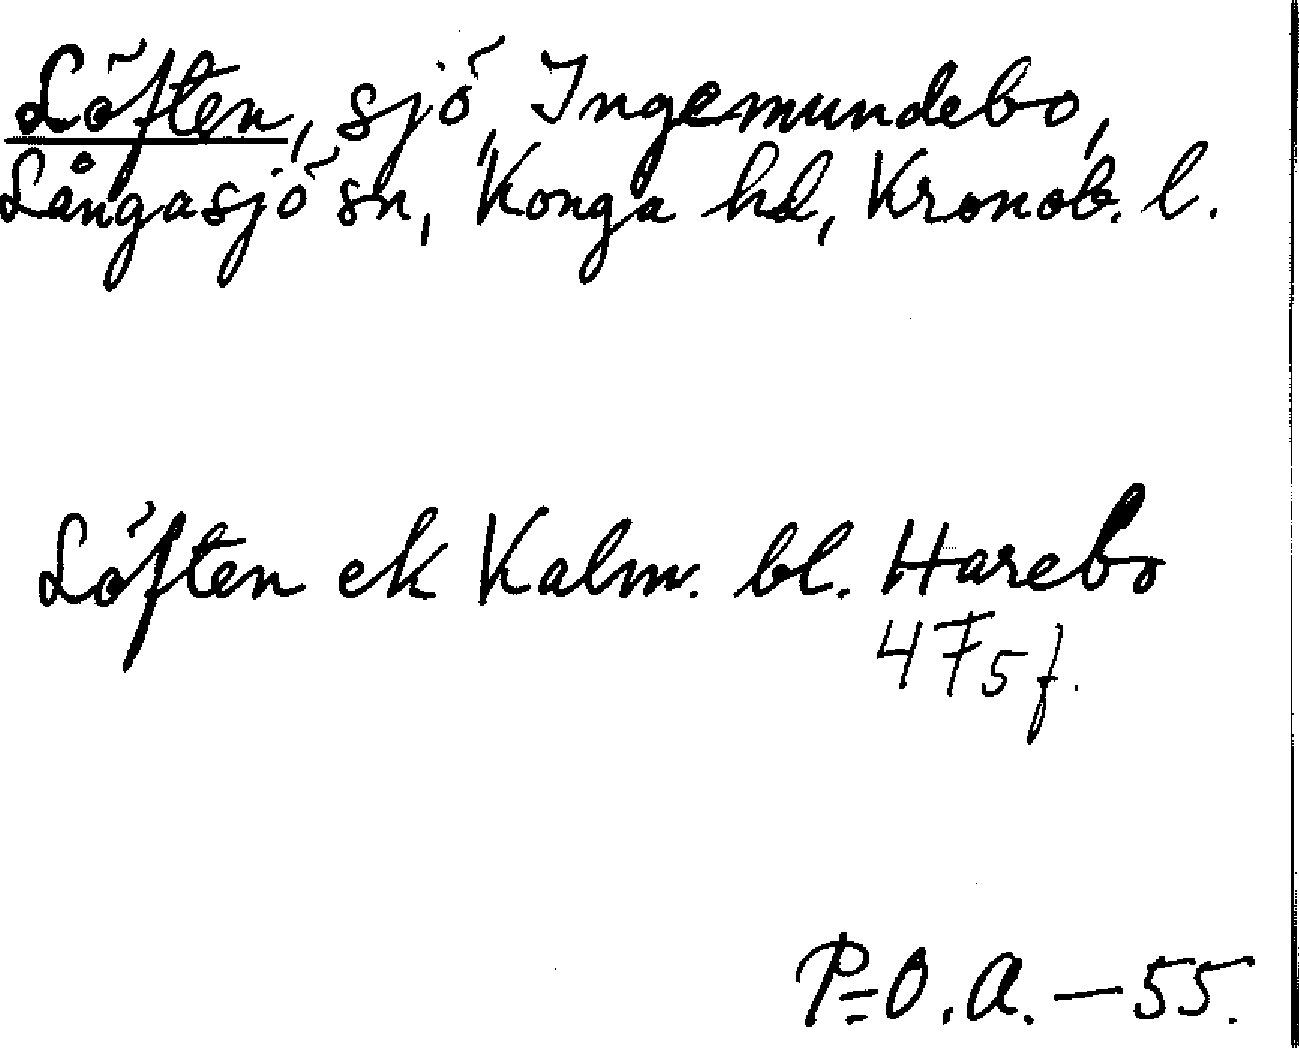 Löften, sjö, Ingemundebo,
Långasjö sn, Konga hd, Kronob. l.
Löften ek Kalm. bl. Harebo
4F5f.
P=O.A.—55.